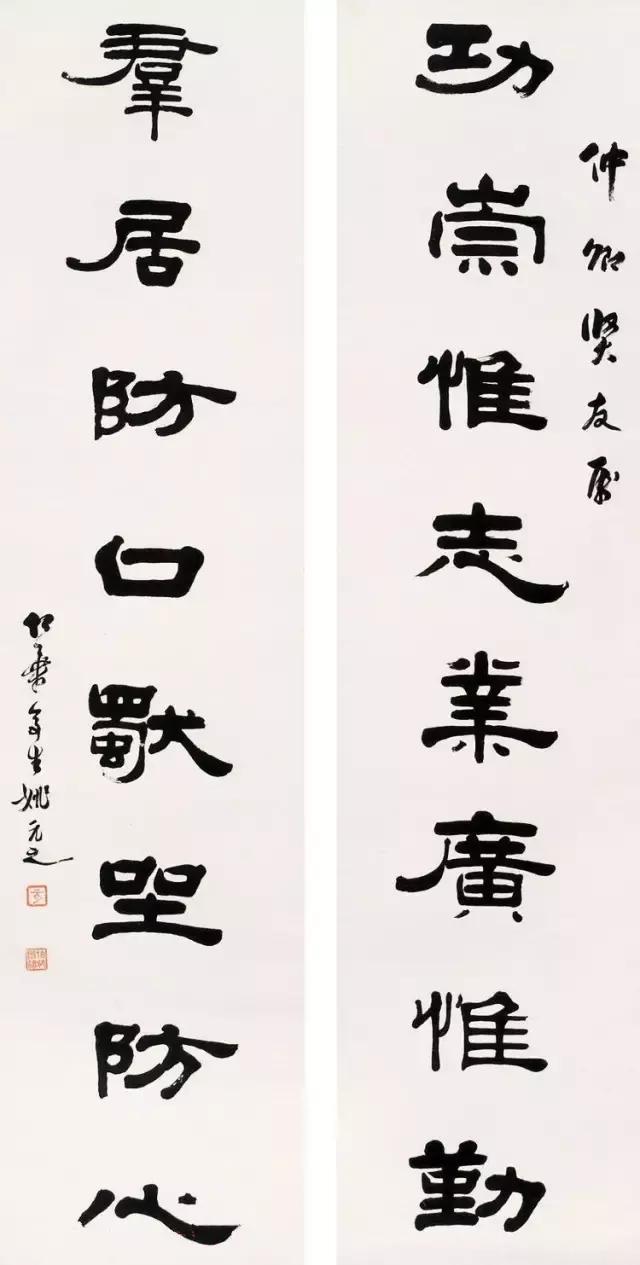 仲卿賢友屬
功崇惟志業廣惟勤
羣居防口獨坐防心
竹葉亭生姚元之